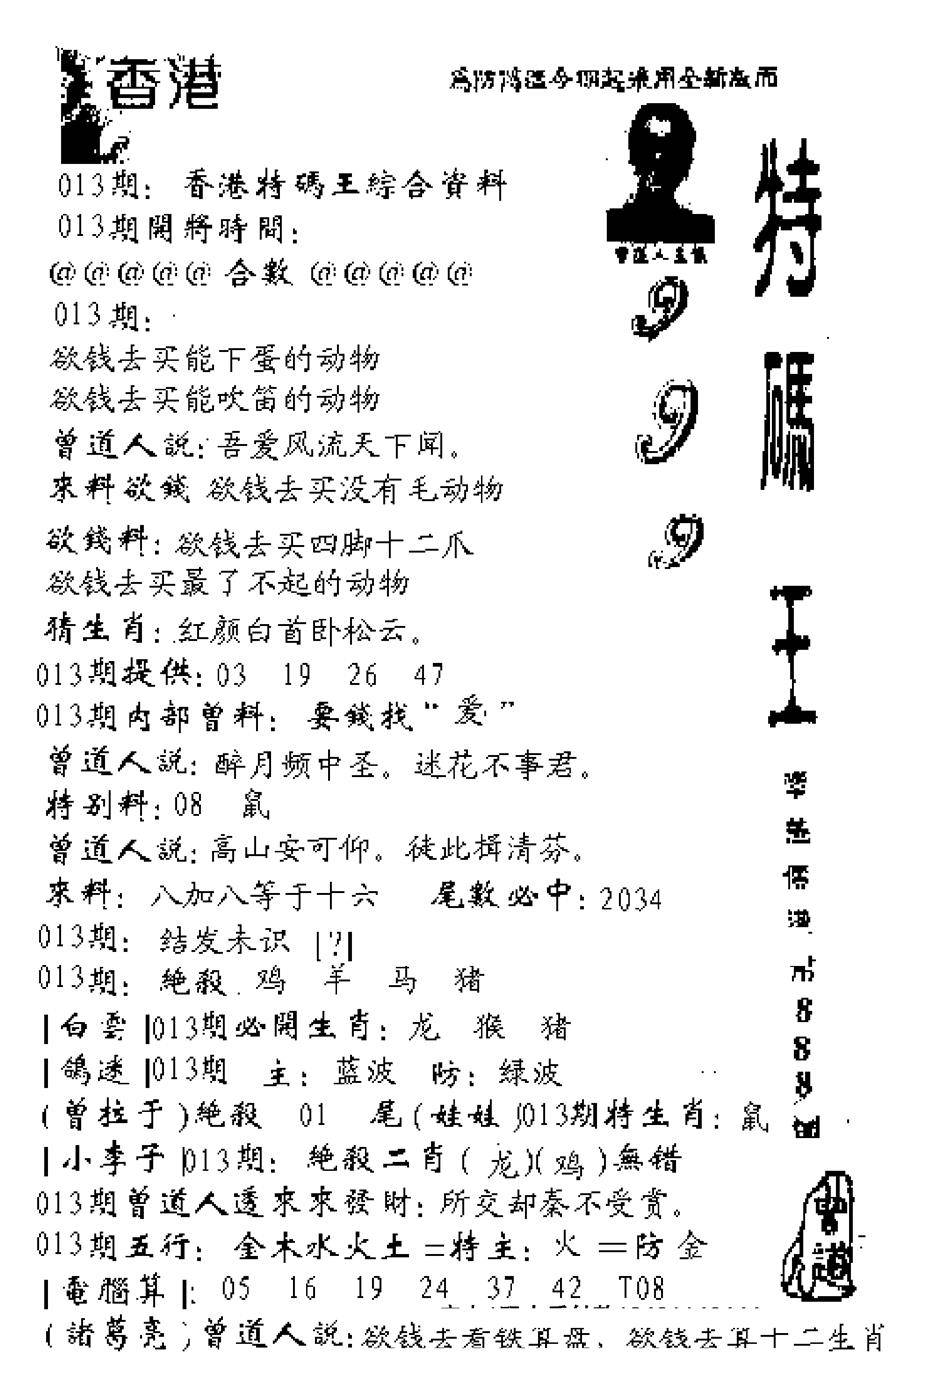 香港
為防偽造今期起采用全新版面
013期: 香港特碼王綜合資料
013期開將時間:
@@@@@ 合數 @@@@@
013期:
欲钱去买能下蛋的动物
欲钱去买能吹笛的动物
曾道人説:吾爱风流天下闻。
來料欲錢 欲钱去买没有毛动物
欲錢料:欲钱去买四脚十二爪
欲钱去买最了不起的动物
猜生肖:红颜白首卧松云。
013期提供:03 19 26 47
013期内部曾料: 要錢找“爱”
曾道人説:醉月频中圣。迷花不事君。
特别料:08 鼠
曾道人説:高山安可仰。徒此揖清芬。
來料: 八加八等于十六 尾數必中:2034
013期: 结发未识 [?]
013期: 絶殺 鸡 羊 马 猪
|白雲|013期必開生肖:龙 猴 猪
|鴿迷|013期 主:蓝波 防:绿波
(曾拉于)絶殺 01 尾(娃娃)013期特生肖:鼠
|小李子|013期: 絶殺二肖(龙)(鸡)無错
013期曾道人透來來發財:所交却秦不受赏。
013期五行: 金木水火土=特主:火 =防金
|電腦算|: 05 16 19 24 37 42 T08
(諸葛亮)曾道人説:欲钱去看铁算盘、欲钱去算十二生肖
曾道人主儀
9
9
9
特
碼
王
港
币
8
8
8
曾道